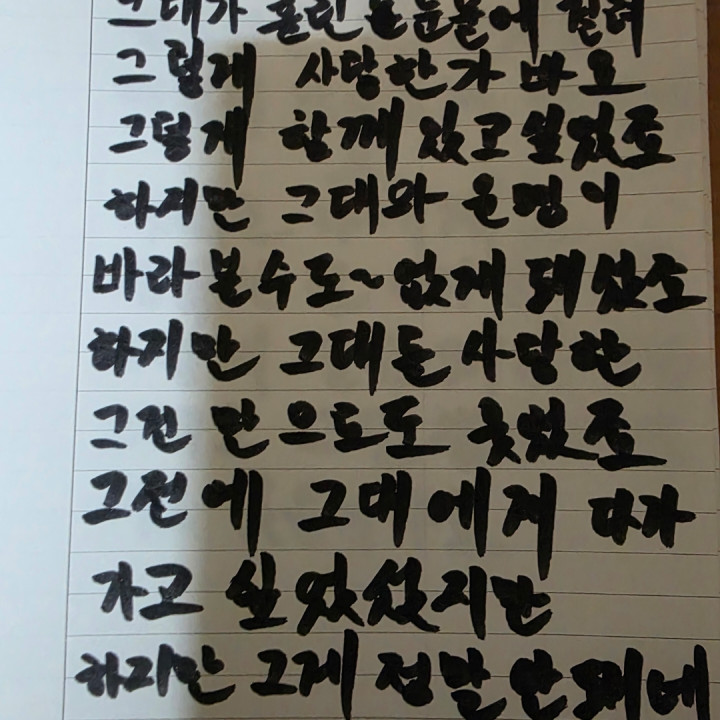 그대가 흘린 눈물에
그렇게 사랑한가 봐요
그렇게 함께 있고 싶었죠
하지만 그대와 운명이
바라볼수도~없게 돼 섰소
하지만 그대들 사랑한
그진 만으로도 웃었죠
그전에 그대에게 다가
가고 싶었섰지만
하지만 그게 정말 안 돼네